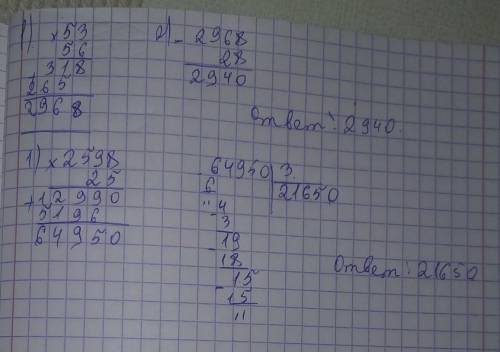 1) ×53
56
318
265
2968
2) - 2968
28
2940
Ответ: 2940.
1) ×2598
25
+12990
5196
64950
64950 3
6 21650
" 4
- 3
19
- 18
15
- 15
"
Ответ: 21650